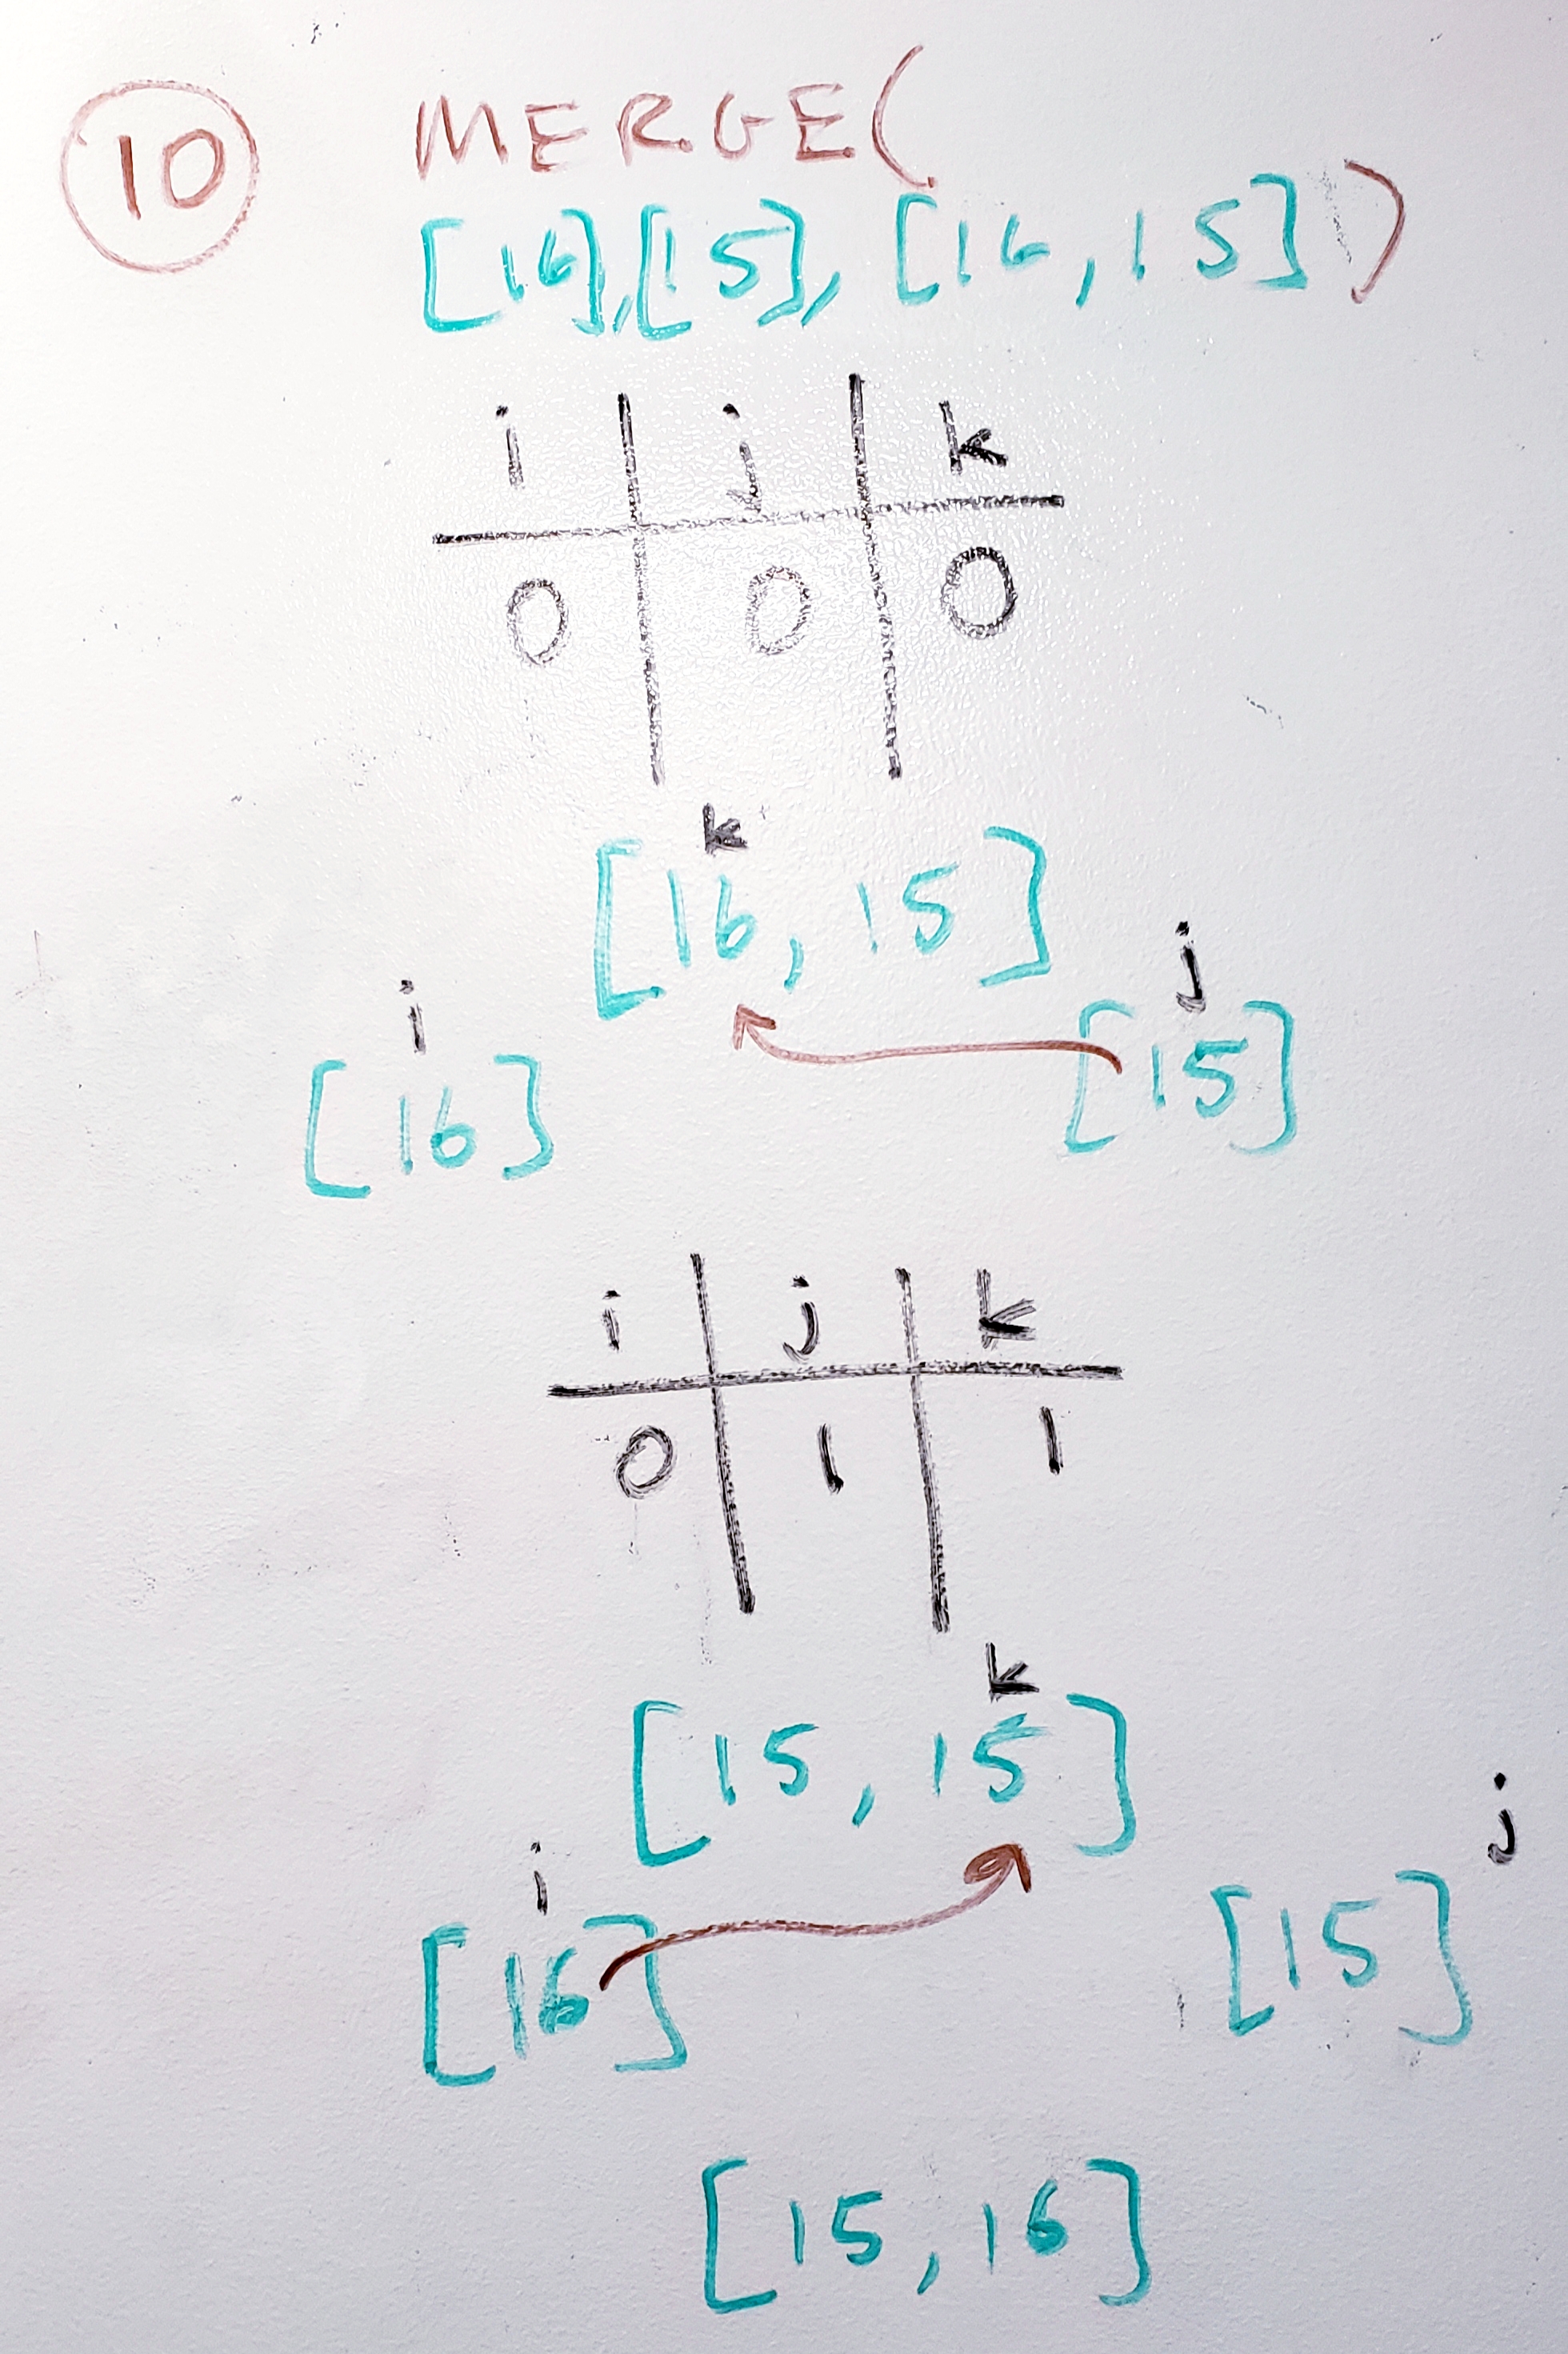 10 MERGE(
[16],[15], [16,15] )
i j k
0 0 0
k
[16, 15]
i j
[16] [15]
i j k
0 1 1
k
[15, 15]
i j
[16] [15]
[15, 16]